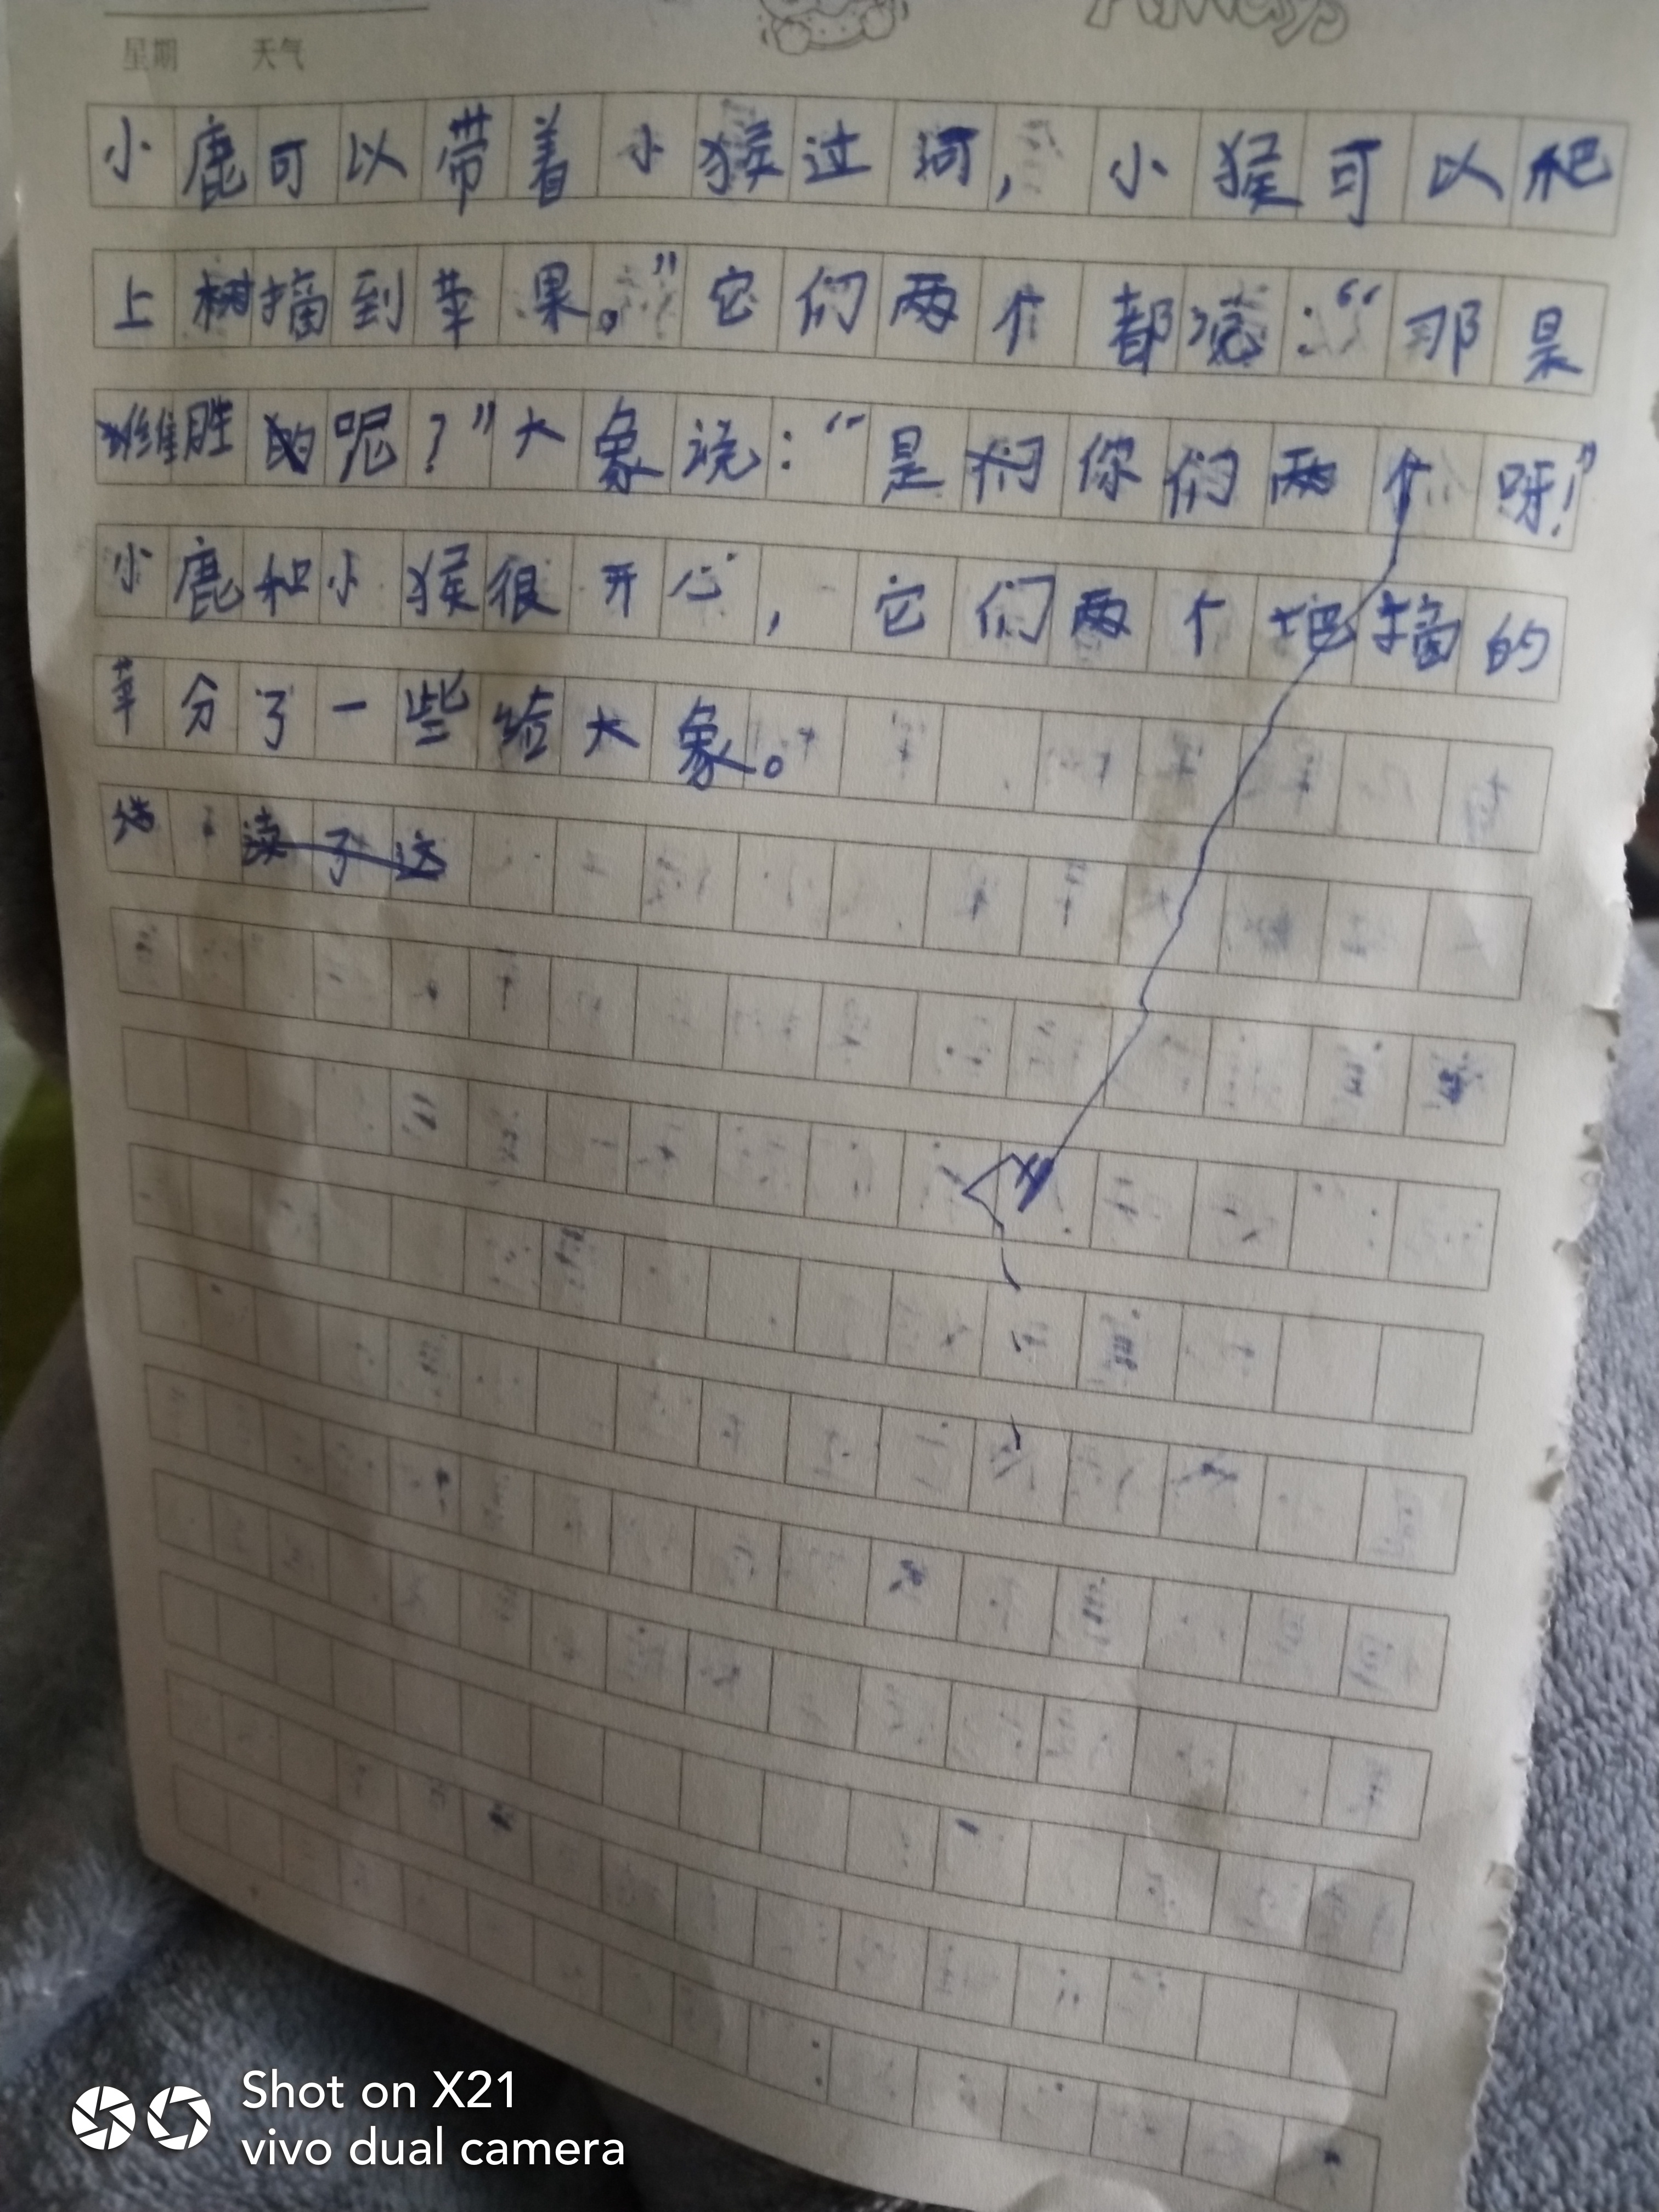 星期 天气
小鹿可以带着小猴过河，小猴可以爬
上树摘到苹果。”它们两个都说：“那是
谁胜的呢？”大象说：“是们你们两个呀！”
小鹿和小猴很开心，它们两个把摘的
苹分了一些给大象。
读了这
Shot on X21
vivo dual camera